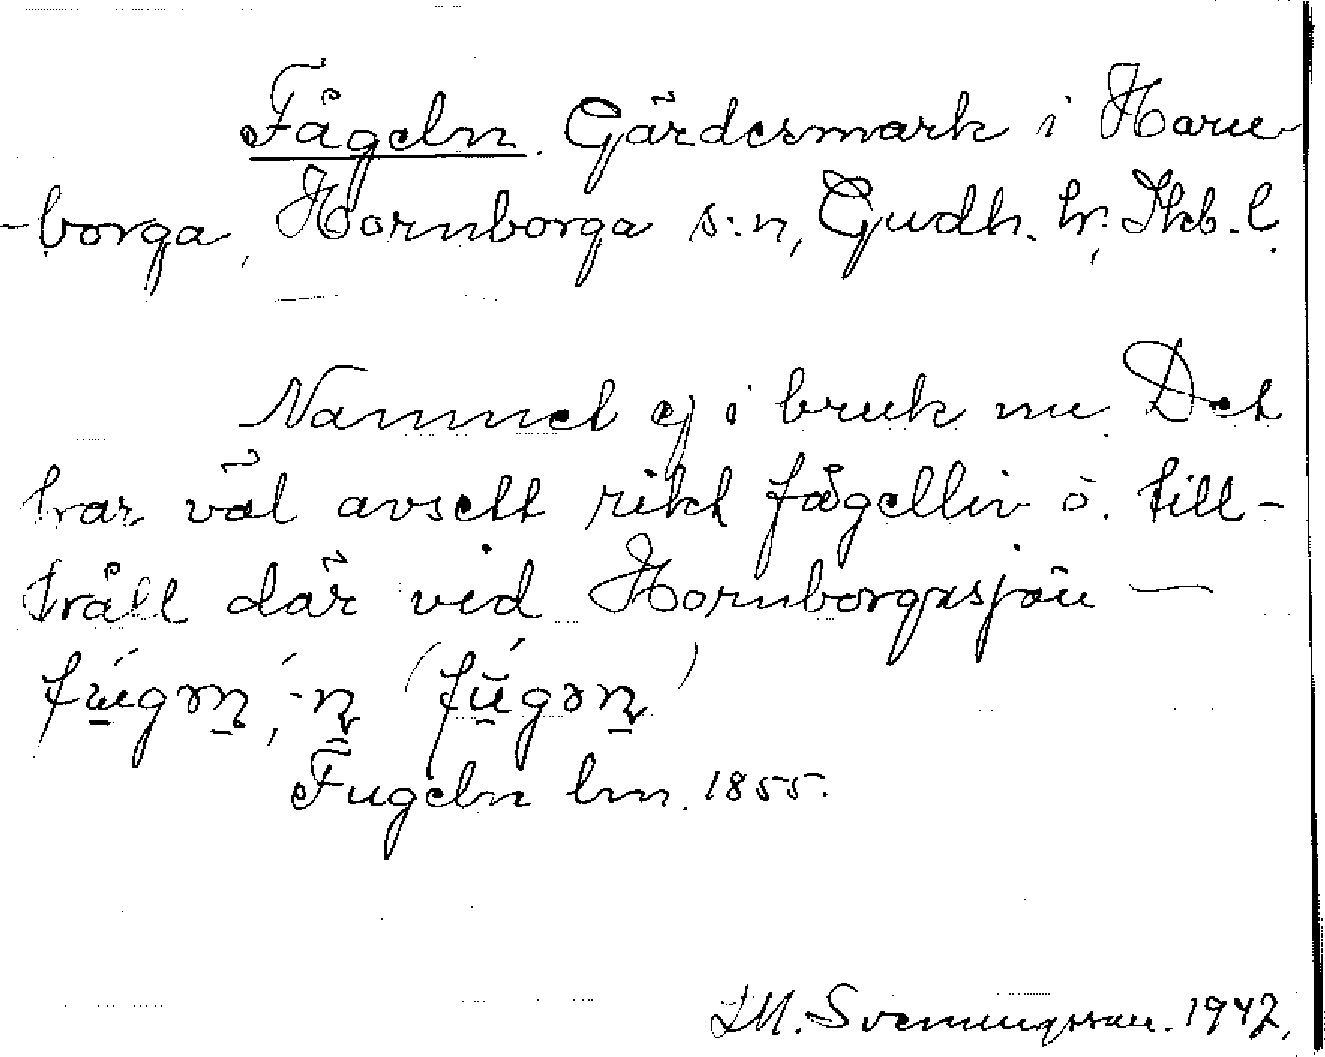 Fågeln. Gärdesmark i Horn-
-borga, Hornborga s:n, Gudh. hr, Skb. l.
Namnet ej i bruk nu. Det
har väl avsett rikt fågelliv o. till-
håll där vid Hornborgasjön —
fúgən, -n (fúgən)
Fugeln lm. 1855.
Svenungsson. 1942.